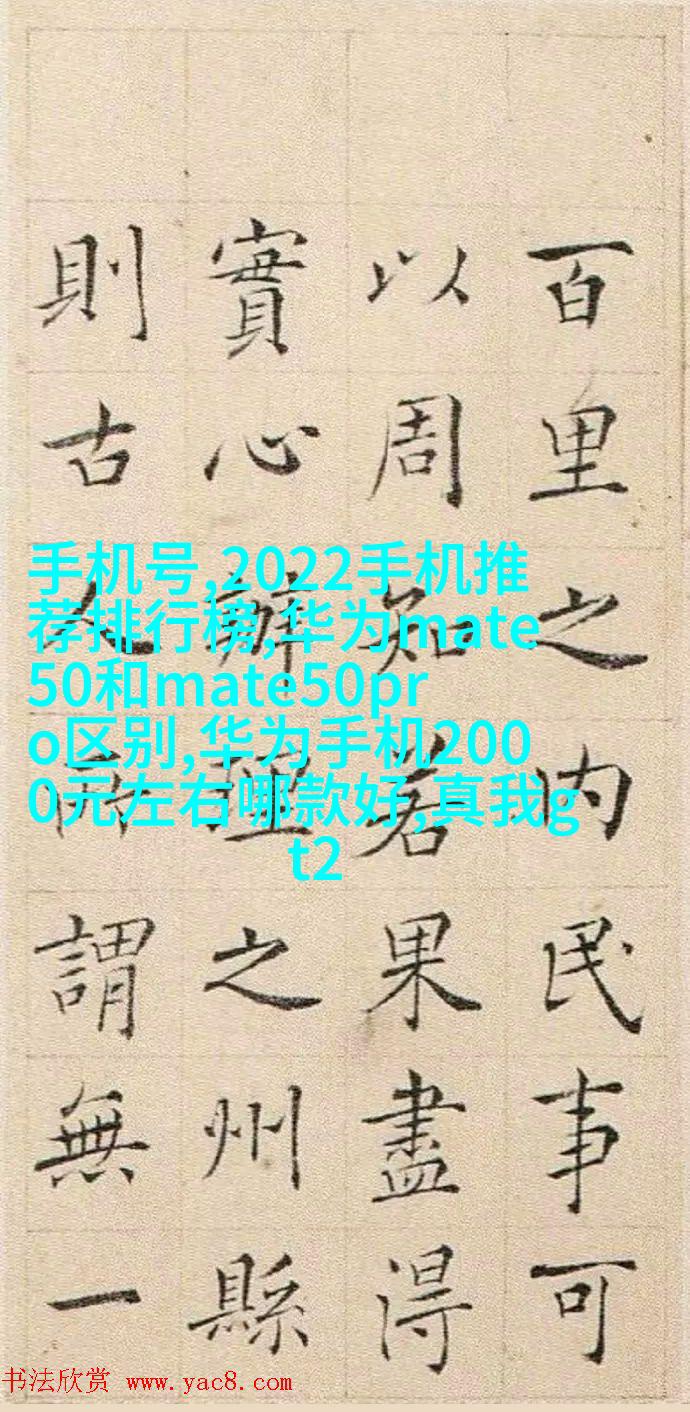 百里之内民事可
以周知若果盡得
實心辦理之州縣
則古人所謂無一
手机号,2022手机推
荐排行榜,华为mate
50和mate50pr
o区别,华为手机200
0元左右哪款好,真我g
t2
书法欣赏 www.yac8.com